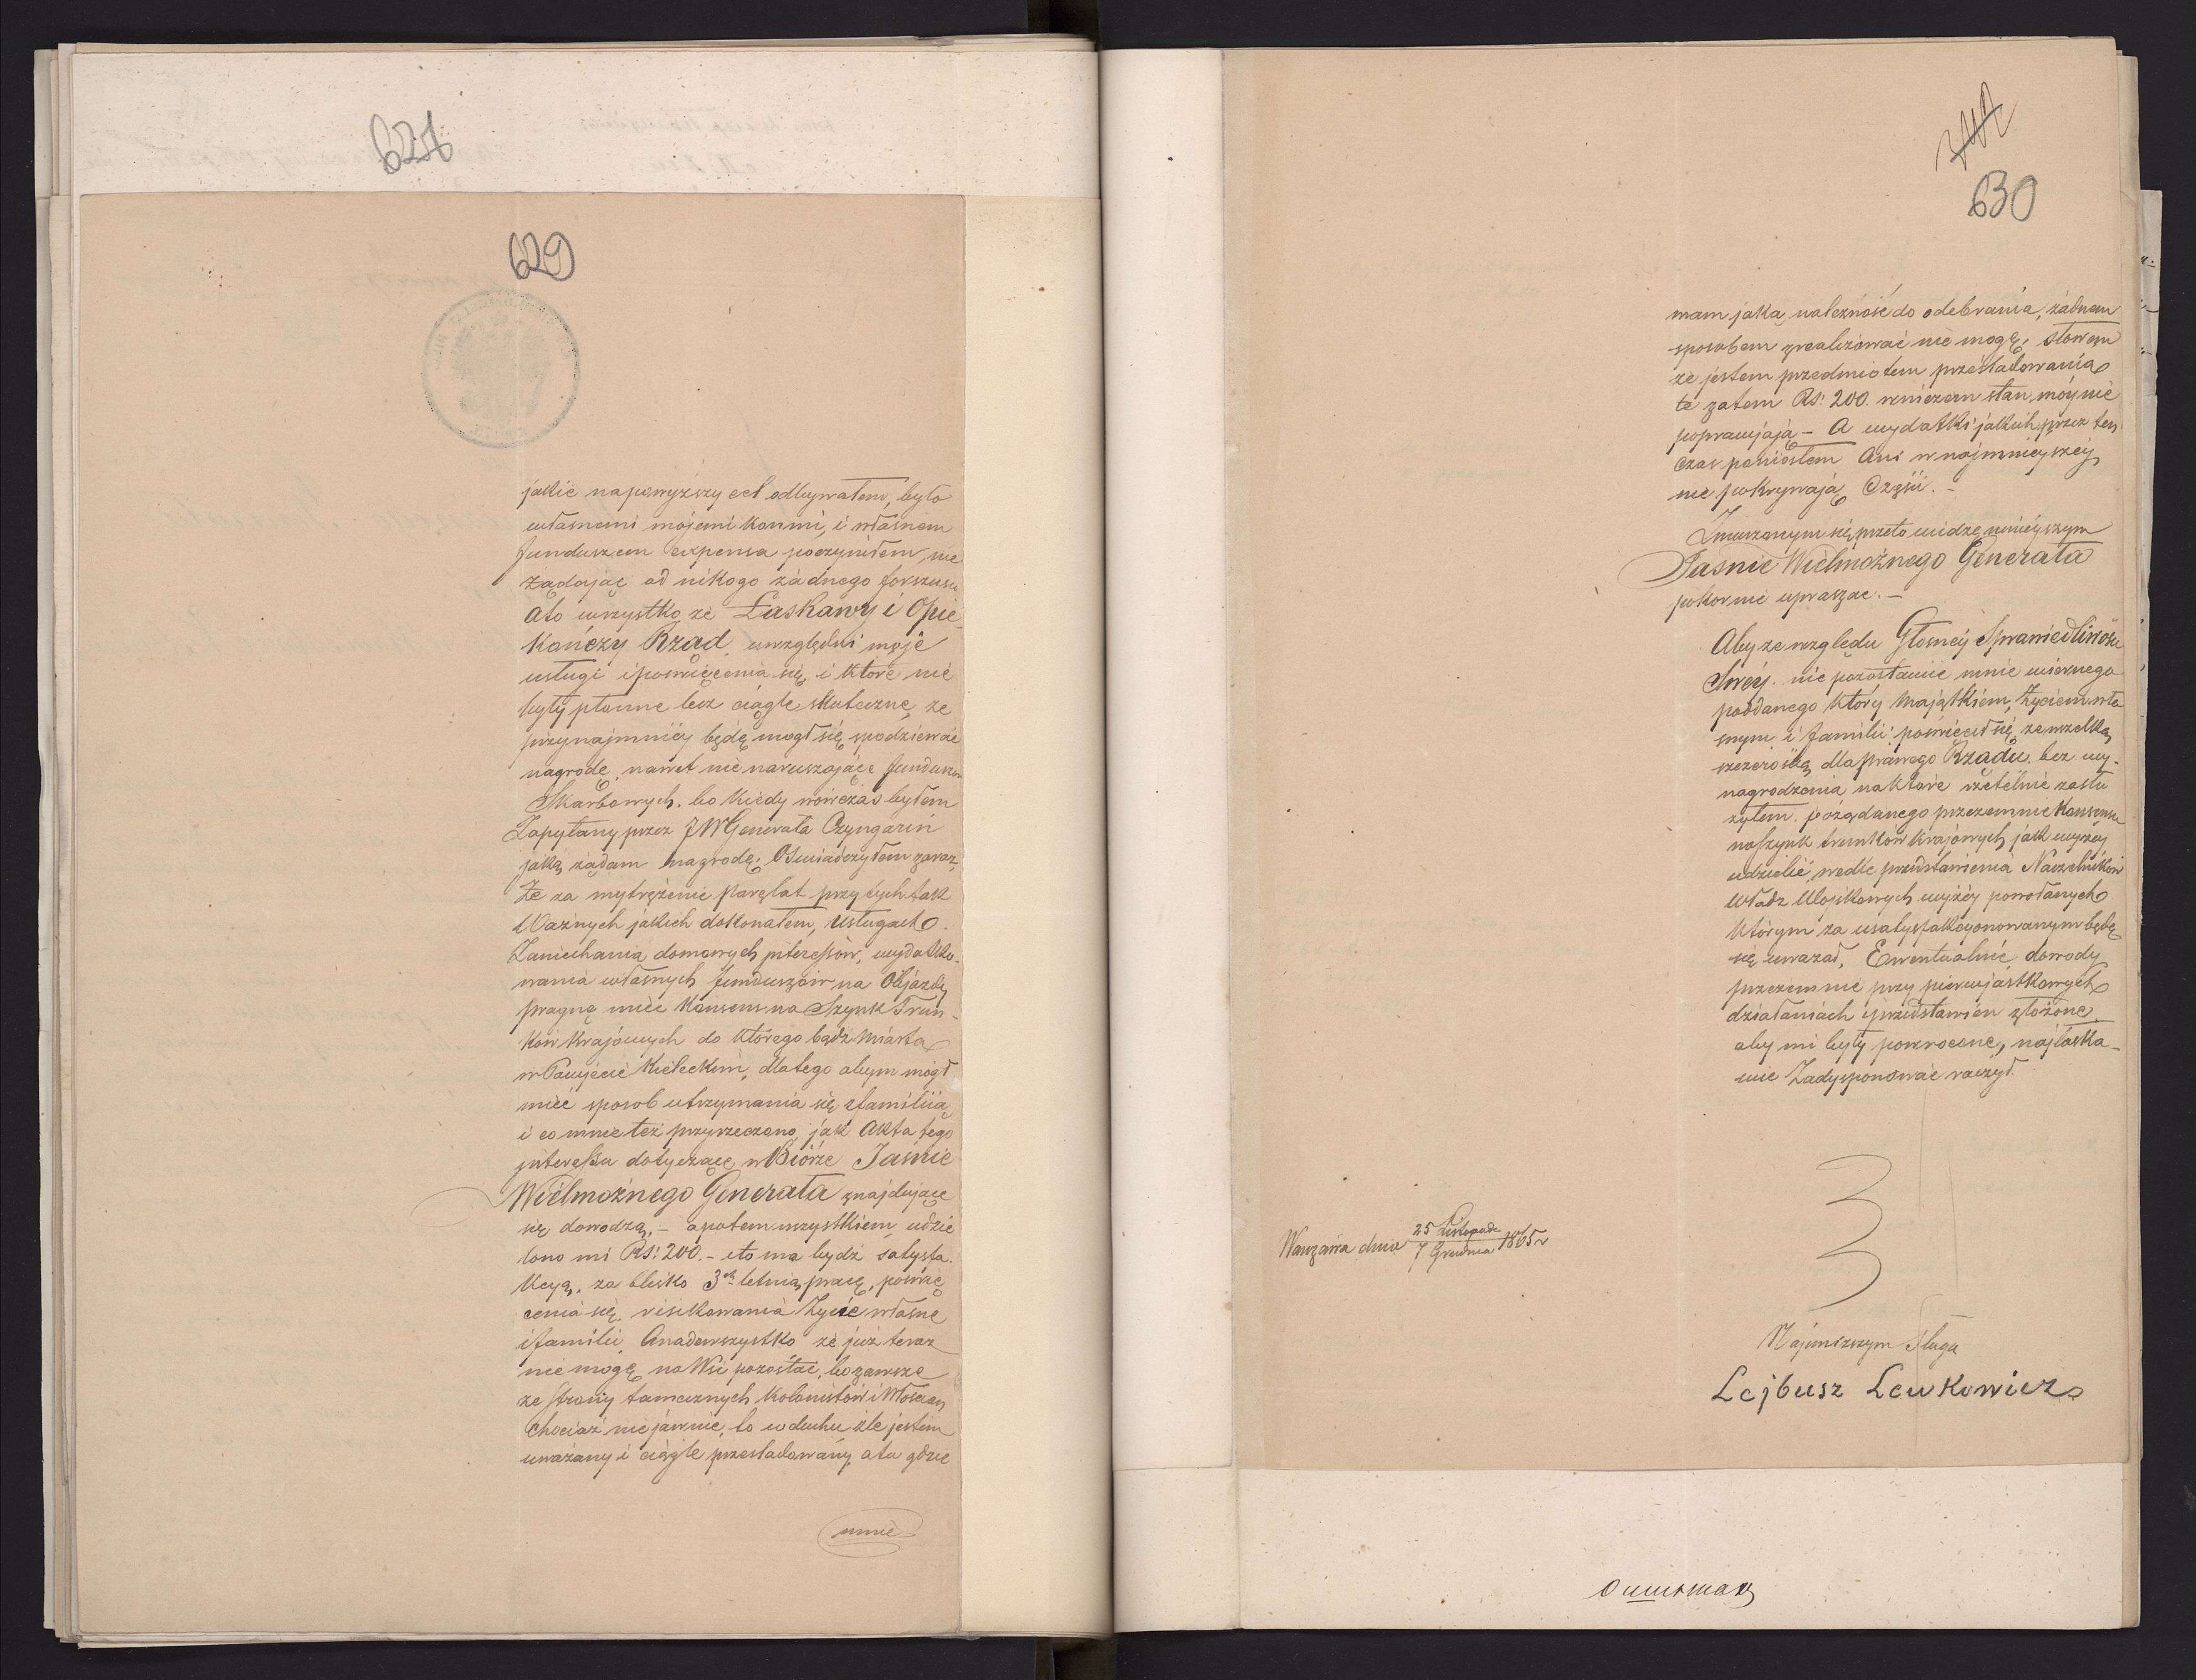 621
629
jakie na powyższy cel odbywałem, było
własnemi mojemi końmi, i własnem
funduszem expensa poczyniłem, nie
żądając od nikogo żadnego forszusu
a to wszystko że Łaskawy i Opie
kończy Rząd, uwzględni moje
usługi i poswięcenia się, i które nie
były płonne lecz ciągle skuteczne, że
przynajmniéy będę mogł się spodziewać
nagrodę, nawet nie naruszające funduszów
Skarbowych, bo kiedy wówczas byłem
Zapytany przez JW Generała Czyngariń
jaką żądam nagrodę; Oświadczyłem zaraz,
Że za mytrężenie parę lat przy tych tak
Ważnych jakich dokonałem, usługach
Zaniechania domowych interessów, wydatko-
wania własnych funduszów na Objazdy
pragnę mieć Konsens na Szynk Trun-
ków krajowych do którego bądź Miasta
w Powjecie Kieleckim, dlatego abym mógł
mieć sposob utrzymania się z familiją
i co mnie też przyrzeczono, jak Akta tego
interessu dotyczące w Biórze Jaśnie
Wielmożnego Generała znajdujące
się dowodzą, – a potem wszystkiem udzie
lono mi Rs: 200. – i to ma bydź satysfa-
kcyą, za blisko 3ch letnią pracę, poświę
cenia się, risikowania Życie własne
i familii, Anadewszystko że już teraz
nie mogę na Wsi pozostać, bo zawsze
ze strony tamecznych Kolonistów i Włościan
chociaż nie jawnie, to w duchu źle jestem
uważany i ciągle prześladowany, a tu gdzie
mnie
630
mam jaką należność do odebrania, żadnem
sposobem zrealizować nie mogę, słowem
że jestem przedmiotem prześladowania
te zatem Rs: 200. w niczem stan mój nie
poprawjają – A wydatki jakich przez ten
czas poniosłem Ani w najmnieyszéy
nie pokrywają Części. –
Zmuszonym się przeto widzę ninieyszym
Jaśnie Wielmożnego Generała
pokornie upraszać. –
Aby ze względu Głosnéy Sprawiedliwości
Swéy, nie pozostawić mnie wiernego
poddanego który Majątkiem, Życiem wła
snym i familii poświęcił się, ze wszelką
szczerością dla prawego Rządu, bez wy-
nagrodzenia na które rzetelnie zasłu
żyłem, pożądanego przezemnie Konsensu
na szynk trunków krajowych jak wyżéy
udzielić, wedle przedstawienia Naczelników
Władz Wojskowych wyżéy powołanych
którym za usatysfakcyonowanym będę
się uważał, Ewentualnie dowody
przezemnie przy pierwjastkowych
działaniach i przedstawien złożone,
aby mi były powrócone, najłaska-
wie Zadysponować raczył.
Warszawa dnia 25 Listopada / 7 Grudnia 1865 r
Najniższym Sługa
Lejbusz Lewkowicz